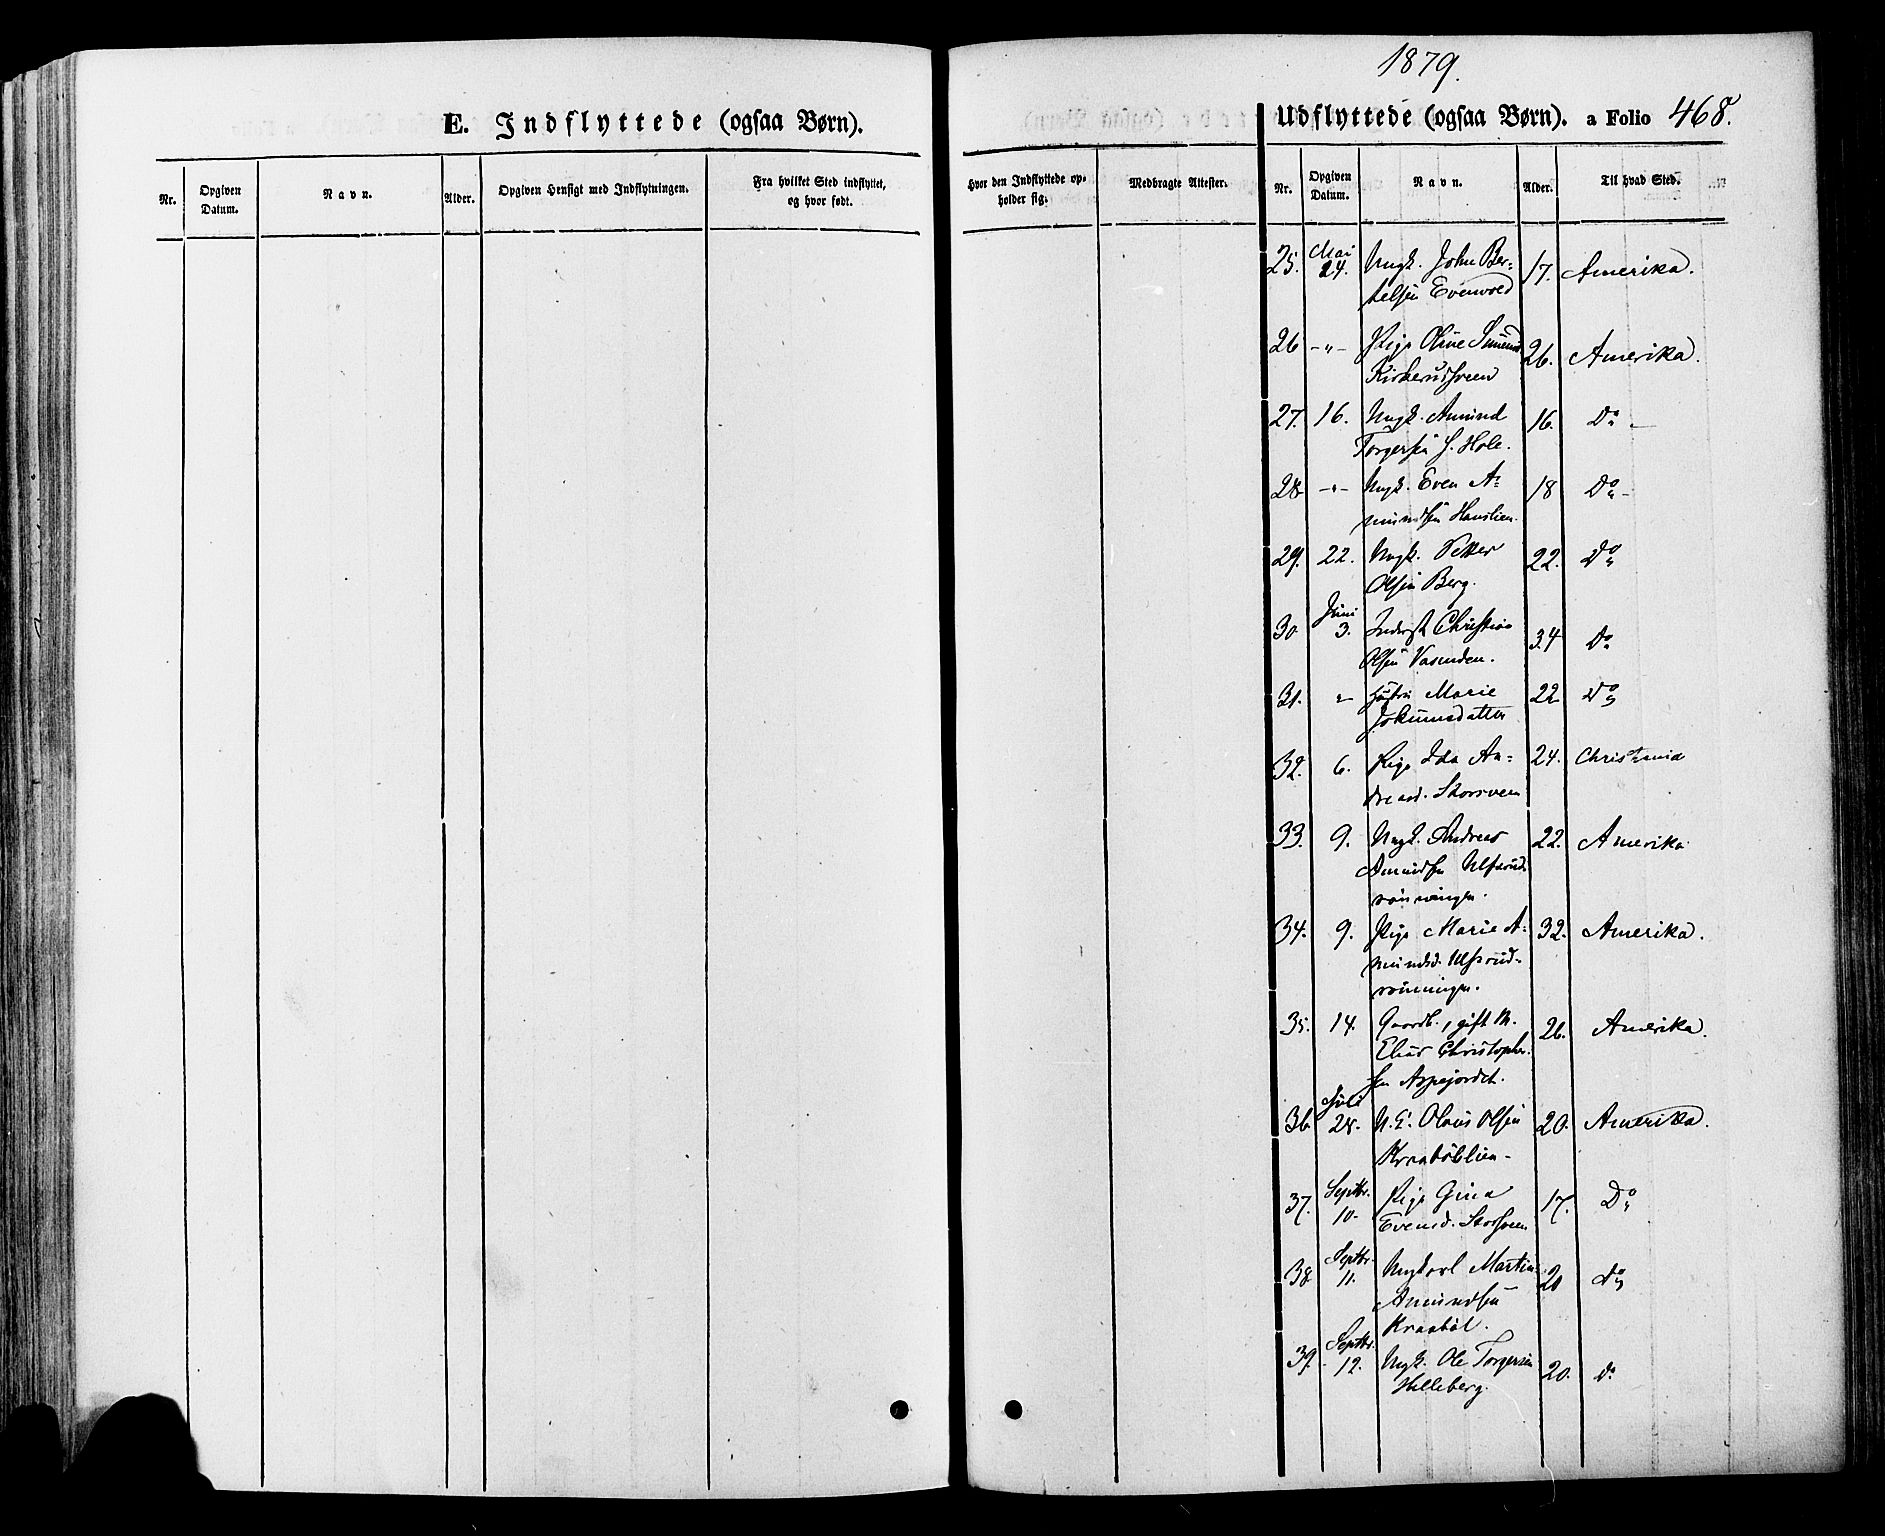 E. Indflyttede (ogsaa Børn).
Nr.
Opgiven Datum.
Navn.
Alder.
Opgiven Hensigt med Indflytningen.
Fra hvilket Sted indflyttet, og hvor født.
1879.
Udflyttede (ogsaa Børn). a Folio 468.
Hvor den Indflyttede opholder sig.
Medbragte Attester.
Nr.
Opgiven Datum.
Navn.
Alder.
Til hvad Sted.
25. Mai 24. Ungk. John Ber- 17. Amerika.
telsen Evenvold
26 -"- Pige Oline 26. Amerika.
Kirkerudsveen
27. 16. Ungk. Amund 16. Do
Torgersen S. Hole.
28 -"- Ungk. Even A- 18 Do
mundsen Hauslien.
29. 22. Ungk. Petter 22. Do
Olsen Berg.
30 Juni 3. Inderst Christian 34 Do
Olsen Vasenden.
31. " Hustru Marie 22 Do
Johannesdatter
32. 6. Pige Ida An- 24. Christiania
dreasd. Storsveen
33. 9. Ungk. Andreas 22. Amerika
Amundsen Ulfsrud-
rønningen.
34. 9. Pige Marie A- 32. Amerika.
mundsd. Ulfsrud-
rønningen.
35. 14. Gaardb., gift M. 26. Amerika.
Elias Christopher-
sen Aspejordet.
36 Juli 28. U.K. Olaus Olsen 20. Amerika.
Kraabøllien
37. Septbr. 10. Pige Gina 17. Do
Evensd. Storsveen
38 Septbr. 11. Ungkarl Martin 20 do
Amundsen
Kraabøl.
39. Septbr. 12. Ungk. Ole Torgersen 20. do
Helleberg.